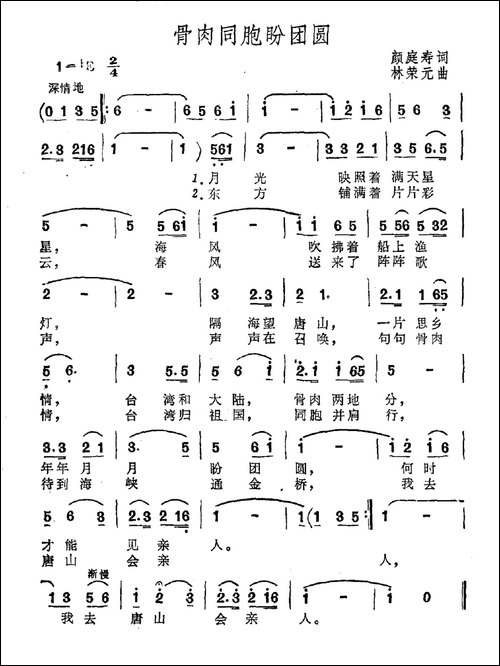 骨肉同胞盼团圆
颜庭寿词
林荣元曲
2/4
深情地
(0 1 3 5 6 - 6 5 6 i i - i - 5 6 6 3
2.3 216 1 - 1) 561 3 - 3 321 35 6.5
1.月光 映照着 满天星
2.东方 铺满着 片片彩
5 - 5 - 5 561 i - 5 35 56 532
星， 海风 吹拂着 船上渔
云， 春风 送来了 阵阵歌
2 - 2 - 3 2.3 2 1 2.1 165
灯， 隔海望唐山， 一片思乡
声， 声声在召唤， 句句骨肉
3 5.5 5 - -
情， 台湾和大陆， 骨肉两地分，
情， 台湾归祖国， 同胞并肩行，
3.3 21 3. 5 5 61 i - i 2 i6
年年月月 盼团圆， 何时
待到海峡 通金桥， 我去
5 60 3 - 2.3 216 1 (1 35)
才能见亲人。
唐山会亲人，
渐慢
1 3 56 i 2 3 2.3 2 16 i - i - i 0
我去唐山会亲人。